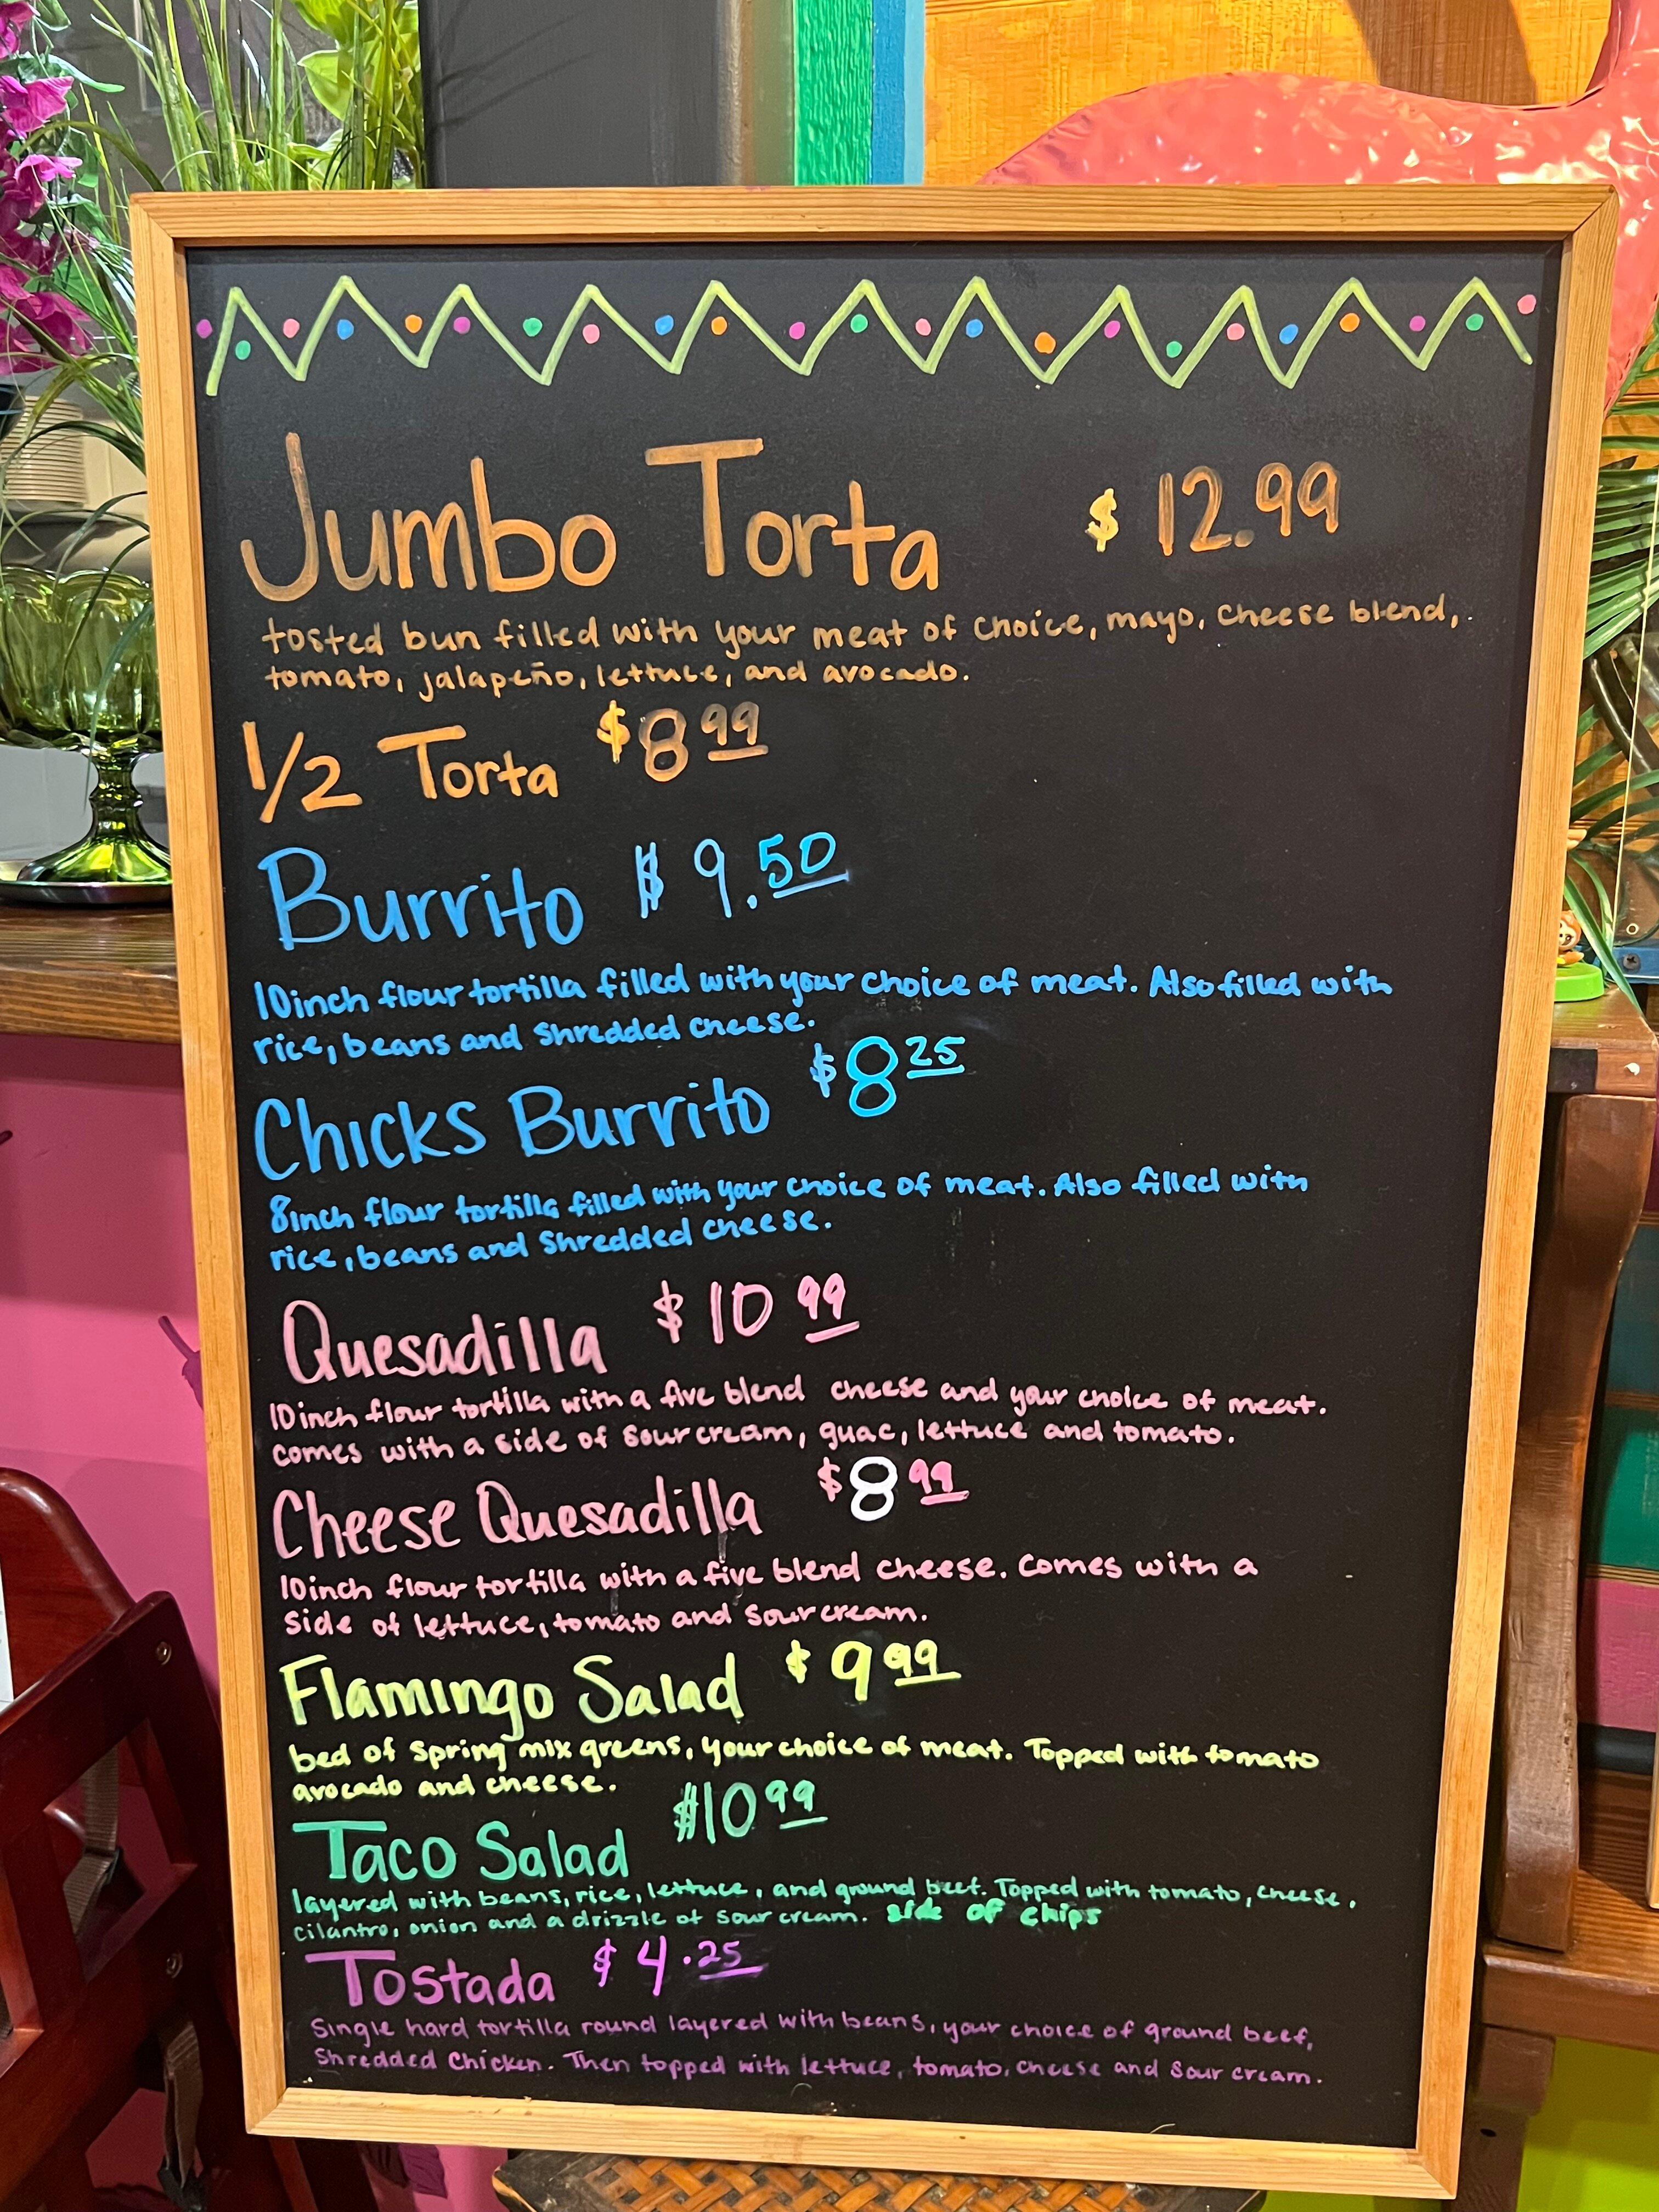 Jumbo Torta $12.99
tosted bun filled with your meat of choice, mayo, cheese blend,
tomato, jalapeño, lettuce, and avocado.
1/2 Torta $8 99
Burrito $9.50
10inch flour tortilla filled with your choice of meat. Also filled with
rice, beans and shredded cheese.
Chicks Burrito $8 25
8inch flour tortilla filled with your choice of meat. Also filled with
rice, beans and shredded cheese.
Quesadilla $10 99
10inch flour tortilla with a five blend cheese and your choice of meat.
comes with a side of sour cream, guac, lettuce and tomato.
Cheese Quesadilla $8 99
10inch flour tortilla with a five blend cheese. comes with a
side of lettuce, tomato and sour cream.
Flamingo Salad $9 99
bed of spring mix greens, your choice of meat. Topped with tomato
avocado and cheese.
Taco Salad $10 99
layered with beans, rice, lettuce, and ground beef. Topped with tomato, cheese,
cilantro, onion and a drizzle of sour cream. side of chips
Tostada $4.25
Single hard tortilla round layered with beans, your choice of ground beef,
Shredded Chicken. Then topped with lettuce, tomato, cheese and sour cream.